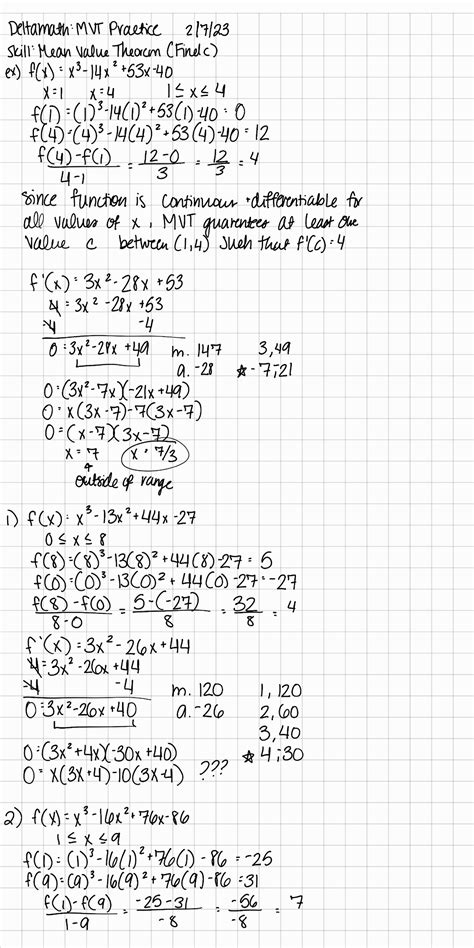 Deltamath: MVT Practice 2/7/23
Skill: Mean Value Theorem (Find c)
ex) f(x) = x³-14x²+53x-40
x=1 x=4 1 ≤ x ≤ 4
f(1) = (1)³-14(1)²+53(1)-40 = 0
f(4) = (4)³-14(4)²+53(4)-40 = 12
f(4)-f(1)/4-1 = 12-0/3 = 12/3 = 4
Since function is continuous + differentiable for
all values of x, MVT guarantees at least one
value c between (1,4) such that f'(c)=4
f'(x) = 3x²-28x+53
4 = 3x²-28x+53
-4 -4
0 = 3x²-28x+49 m. 147 3,49
a. -28 ☆ -7,-21
0 = (3x²-7x)(-21x+49)
0 = x(3x-7)-7(3x-7)
0 = (x-7)(3x-7)
x = 7 x = 7/3
outside of range
1) f(x) = x³-13x²+44x-27
0 ≤ x ≤ 8
f(8) = (8)³-13(8)²+44(8)-27 = 5
f(0) = (0)³-13(0)²+44(0)-27 = -27
f(8)-f(0)/8-0 = 5-(-27)/8 = 32/8 = 4
f'(x) = 3x²-26x+44
4 = 3x²-26x+44
-4 -4 m. 120 1, 120
0 = 3x²-26x+40 a. -26 2, 60
3, 40
0 = (3x²+4x)(-30x+40) ☆ 4,30
0 = x(3x+4)-10(3x-4) ???
2) f(x) = x³-16x²+76x-86
1 ≤ x ≤ 9
f(1) = (1)³-16(1)²+76(1)-86 = -25
f(9) = (9)³-16(9)²+76(9)-86 = 31
f(1)-f(9)/1-9 = -25-31/-8 = -56/-8 = 7